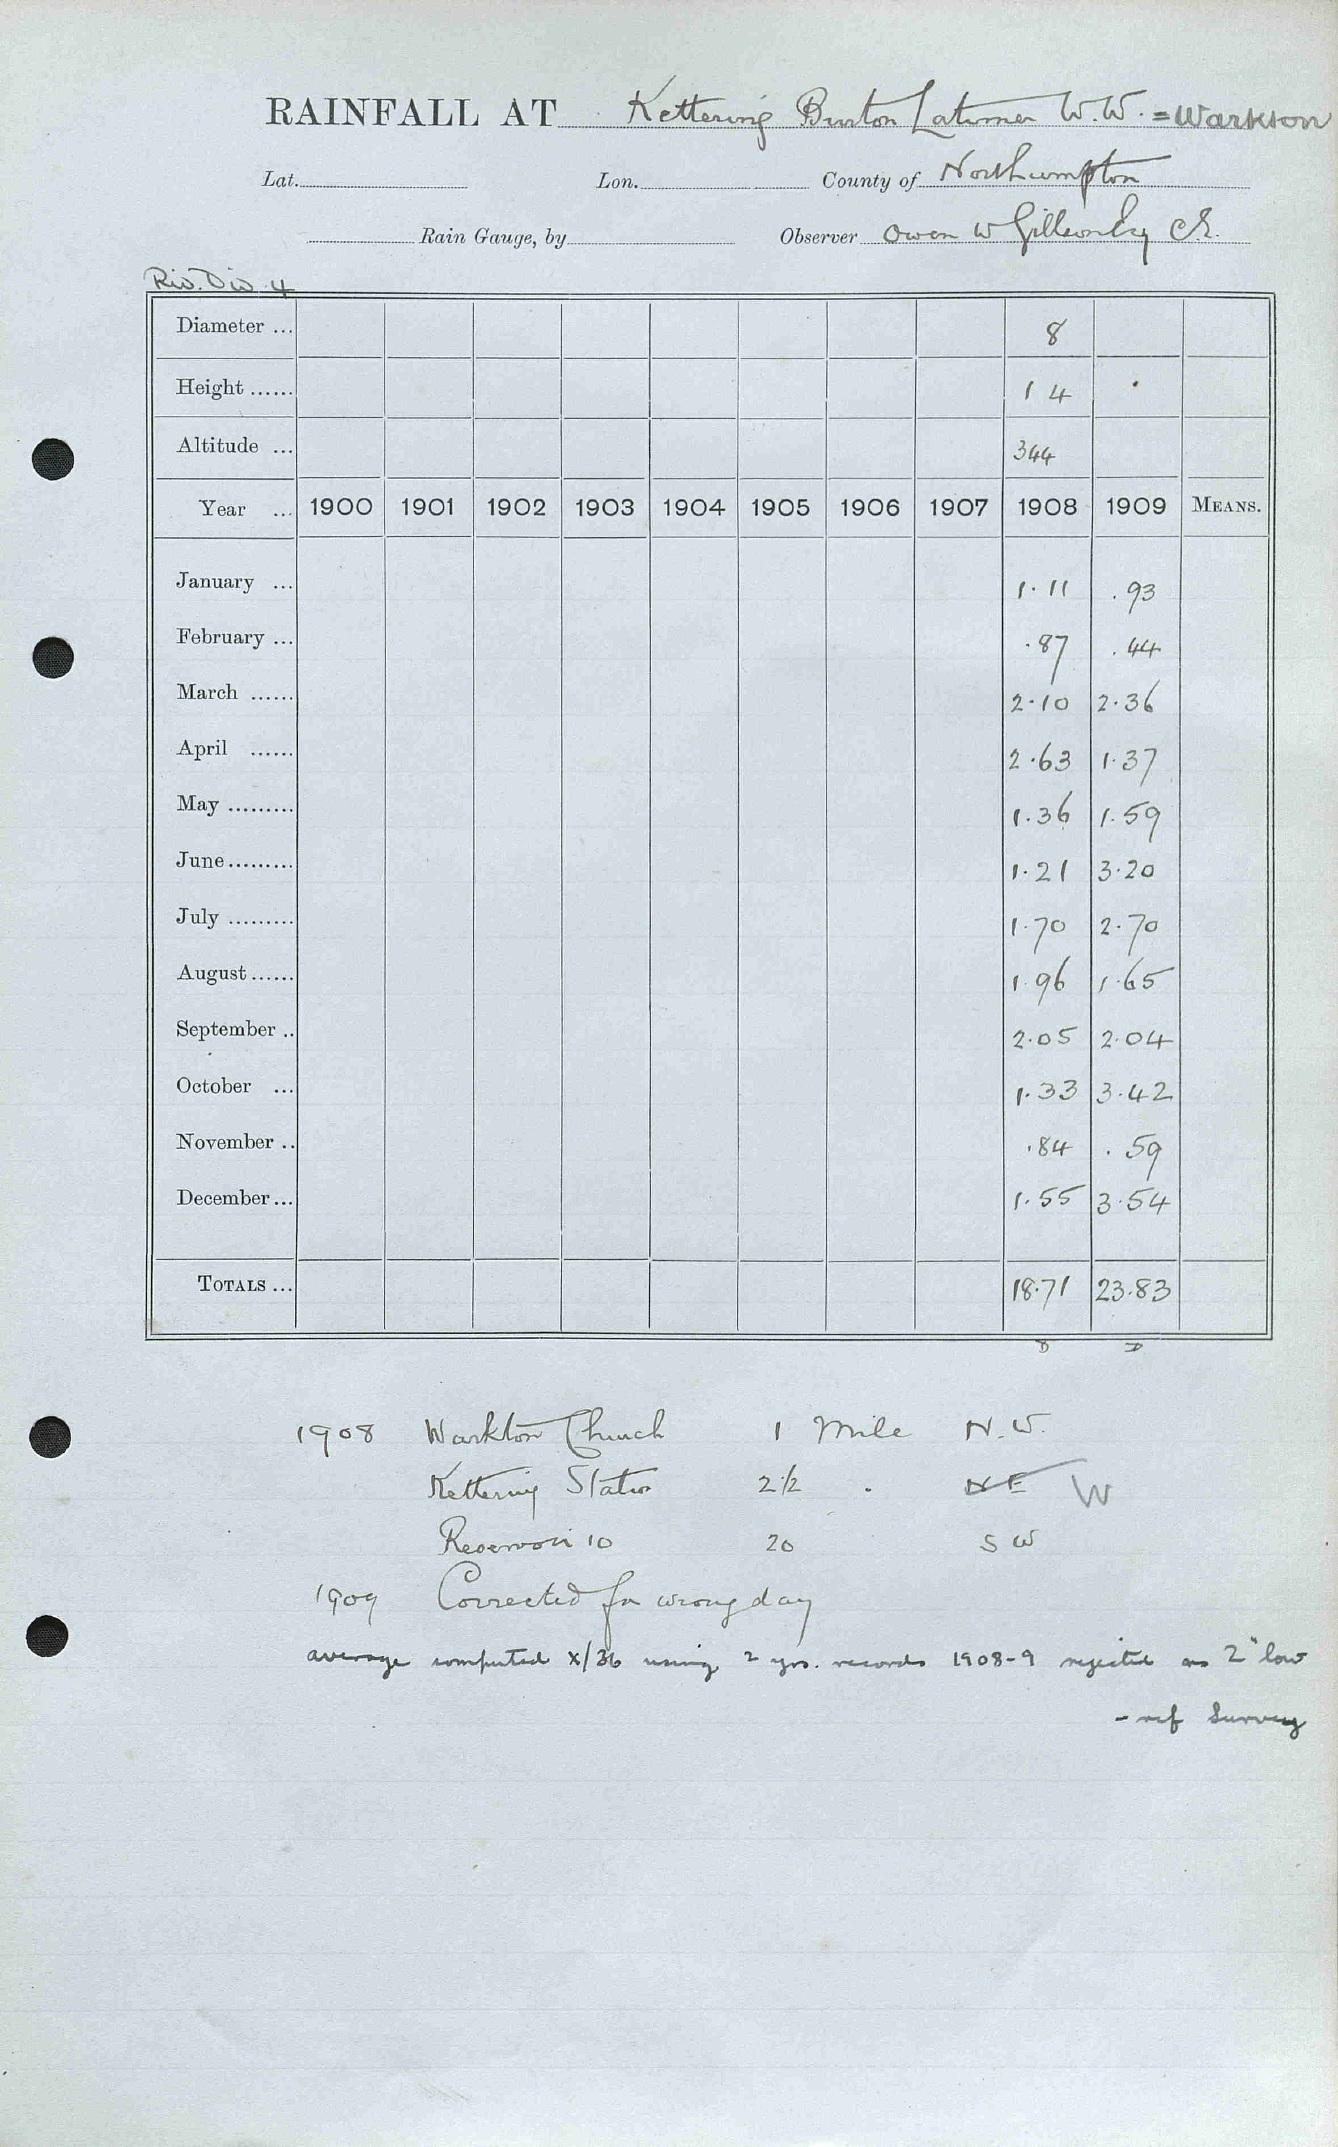 RAINFALL AT Kettering Burton Latimer W.W. = Warkton
Lat. Lon. County of Northampton
Rain Gauge, by Observer Owen W
Riv. Div. 4
Diameter ... 8
Height ...... 1 4
Altitude ... 344
Year ... 1900 1901 1902 1903 1904 1905 1906 1907 1908 1909 MEANS.
January ... 1.11 .93
February ... .87 .44
March ...... 2.10 2.36
April ...... 2.63 1.37
May ......... 1.36 1.59
June ......... 1.21 3.20
July ......... 1.70 2.70
August ...... 1.96 1.65
September .. 2.05 2.04
October ... 1.33 3.42
November .. .84 .59
December ... 1.55 3.54
TOTALS ... 18.71 23.83
1908 Warkton Church 1 Mile N.W.
Kettering Station 2 1/2 . NE W
Reservoir 10 20 S W
1909 Corrected for wrong day
average computed x/36 using 2 yrs. records 1908-9 rejected as 2" low
- ref Survey